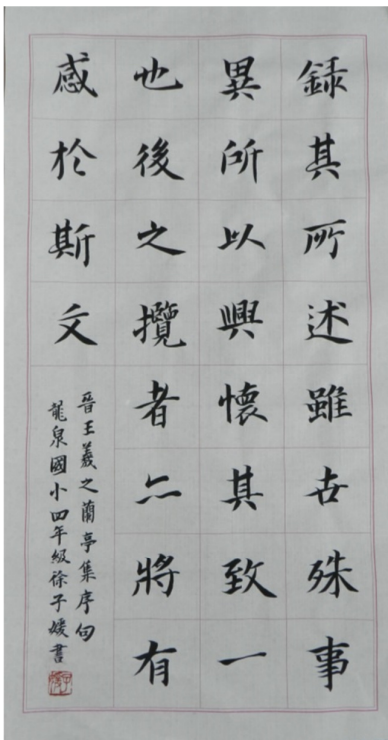 録其所述雖世殊事
異所以興懷其致一
也後之攬者亦將有
感於斯文
晉王羲之蘭亭集序句
龍泉國小四年級徐子媛書